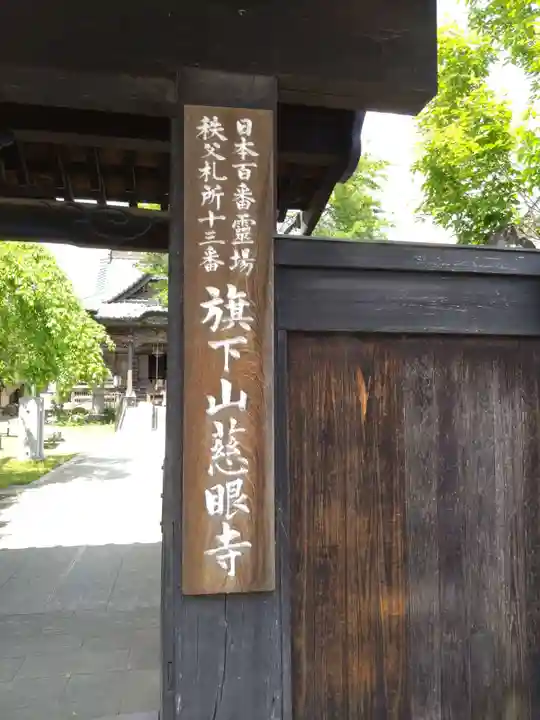 日本百番霊場
秩父札所十三番
旗下山慈眼寺